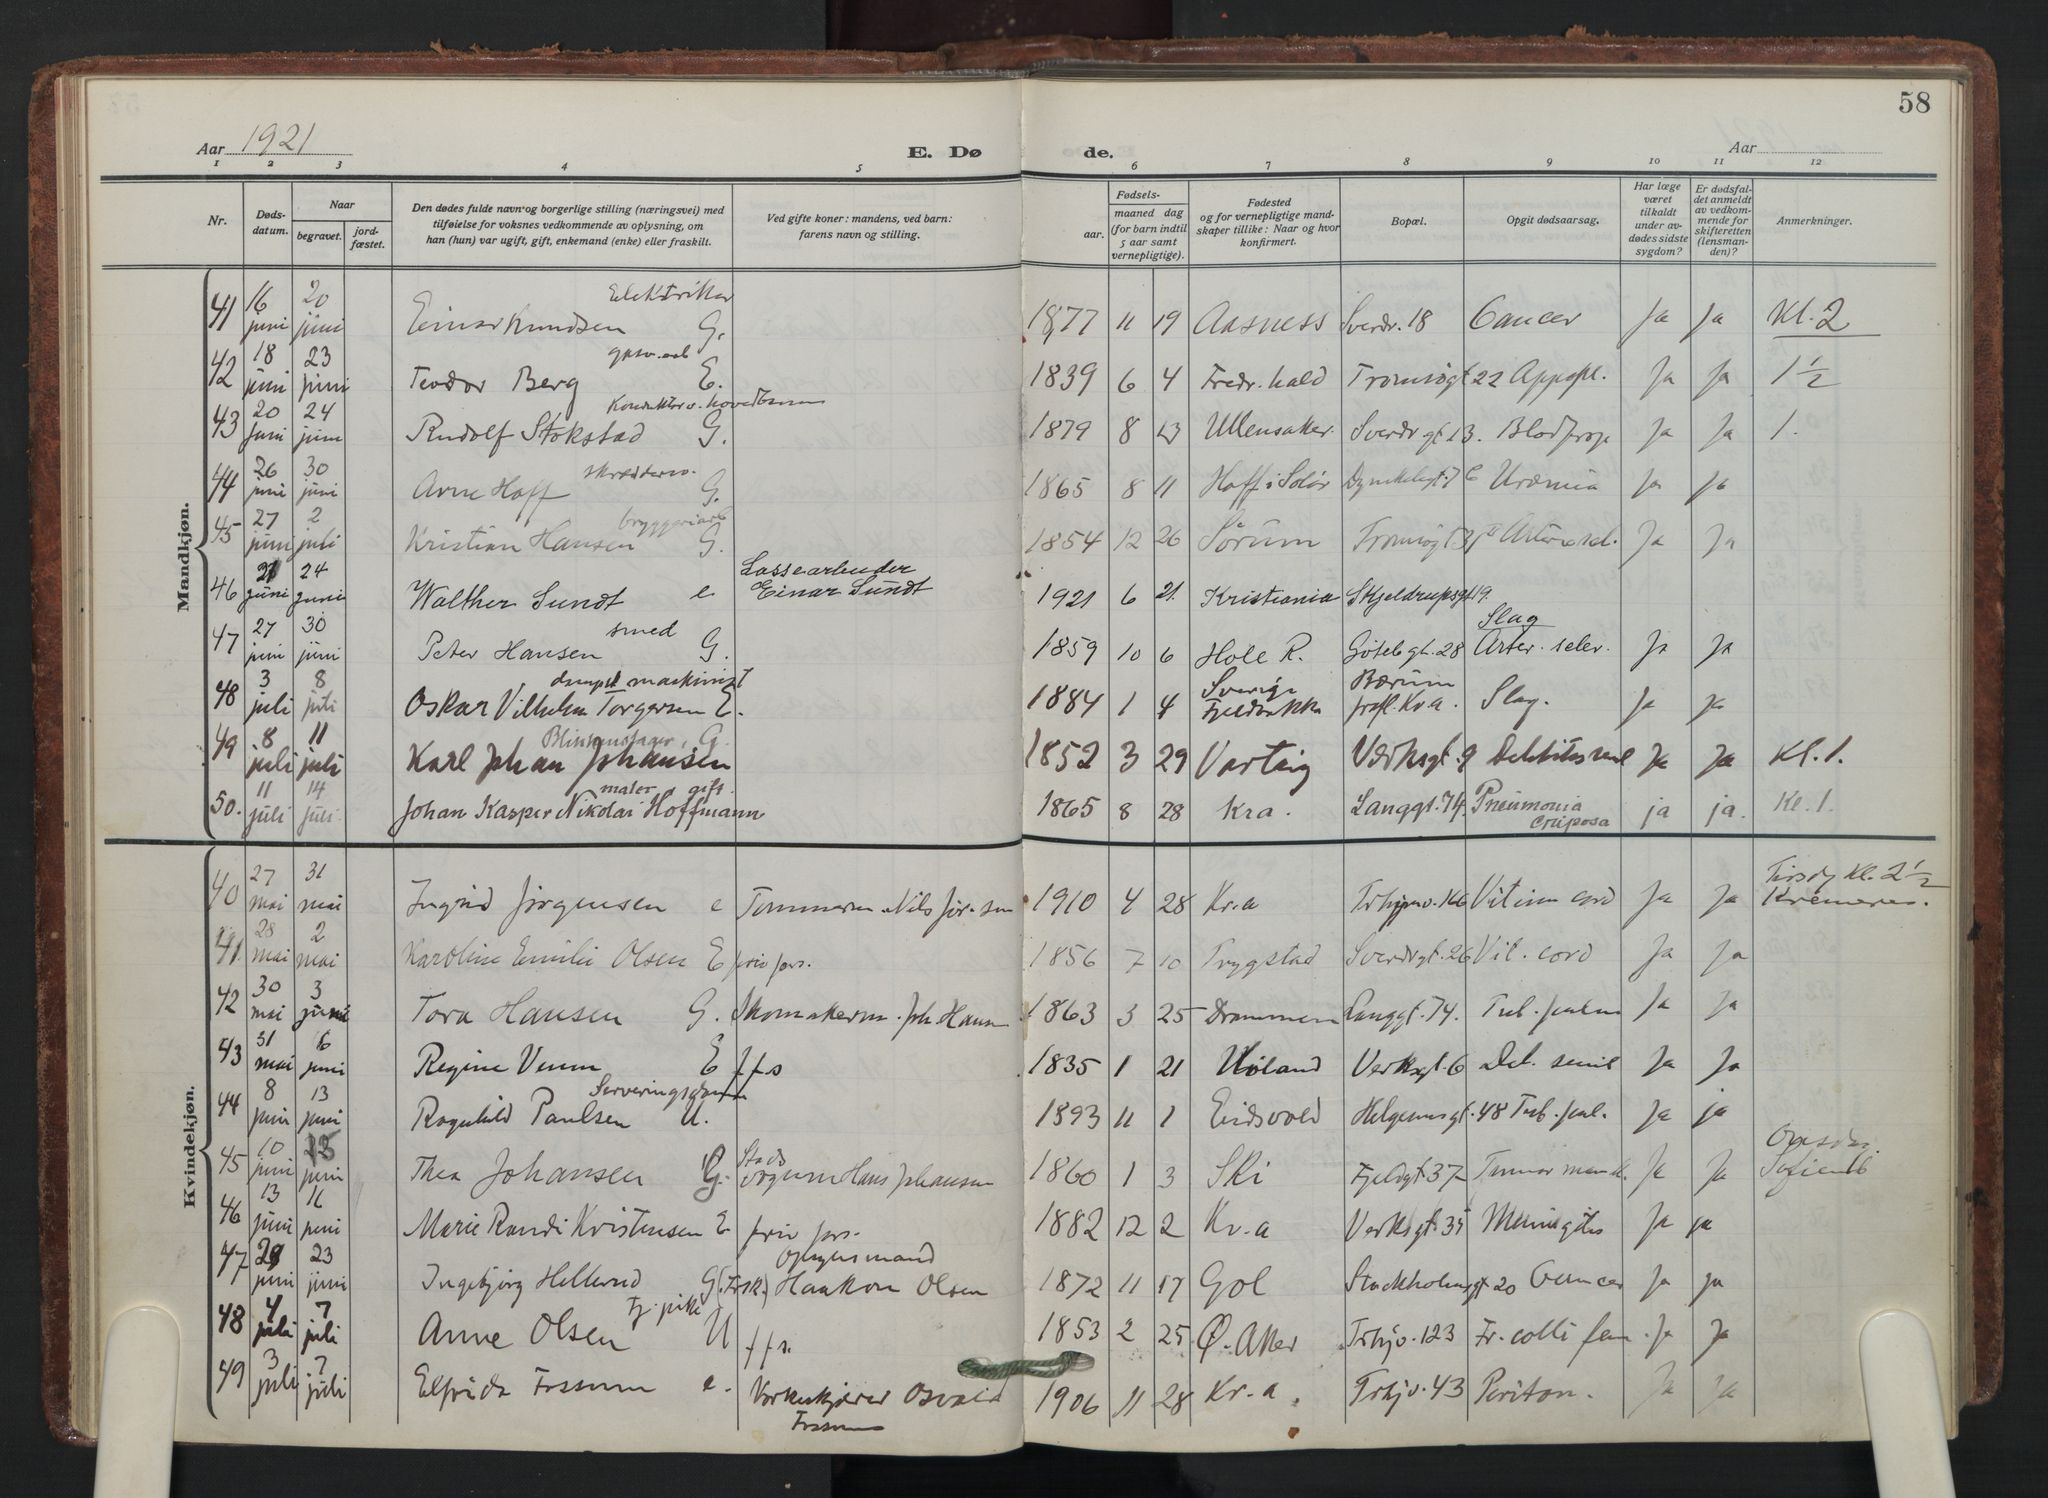 58
Aar 1921
E. Dø
de.
Aar
1 2 3 4 5 6 7 8 9 10 11 12
Nr.
Døds-
datum.
Naar
begravet.
jord-
fæstet.
Den dødes fulde navn og borgerlige stilling (næringsvei) med
tilføielse for voksnes vedkommende av oplysning, om
han (hun) var ugift, gift, enkemand (enke) eller fraskilt.
Ved gifte koner: mandens, ved barn:
farens navn og stilling.
Fødsels-
aar.
maaned dag
(for barn indtil
5 aar samt
vernepligtige).
Fødested
og for vernepligtige mand-
skaper tillike: Naar og hvor
konfirmert.
Bopæl.
Opgit dødsaarsag.
Har læge
været
tilkaldt
under av-
dødes sidste
sygdom?
Er dødsfal-
det anmeldt
av vedkom-
mende for
skifteretten
(lensman-
den)?
Anmerkninger.
Mandkjøn.
Elektriker
41 16 juni 20 juni Einar Knudsen G. 1877 11 19 Aasness Sverdr. 18 Cancer Ja Ja Kl. 2
42 18 juni 23 juni Teodor Berg E. 1839 6 4 Fredr. hald Tromsøgt 22 Appopl. Ja Ja 1½
43 20 juni 24 juni Rudolf Stokstad G. 1879 8 13 Ullensaker Sverdrgt 13. Blodprop Ja Ja 1.
44 26 juni 30 juni Arne Hoff G. 1865 8 11 Hoff i Solør Uræmia Ja Ja
bryggeriarb
45 27 juni 2 juli Kristian Hansen G. 1854 12 26 Sørum Ja Ja
Lassearbeider
46 21 juni 24 juni Walther Sundt e Einar Sundt 1921 6 21. Kristiania Skjeldrupsgt 19.
smed Slag
47 27 juni 30 juni Peter Hansen G. 1859 10 6 Hole R. Götebgt. 28 Arter. scler. Ja Ja
dampsk maskinist Sverige Bærum
48 3 juli 8 juli Oskar Vilhelm Torgersen E. 1884 1 4 Fjeldbakka Slag. Ja Ja
49 8 juli 11 juli Karl Johan Johansen G. 1852 3 29 Varteig Verksgt. 9 Ja Ja Kl. 1.
maler, gift.
50. 11 juli 14 juli. Johan Kasper Nikolai Hoffmann 1865 8 28 Kra. Langgt. 74. Pneumonia ja ja. Kl. 1.
Cruposa
Kvindekjøn.
40 27 mai 31 mai Ingrid Jørgensen e Tømmerm. Nils Jør-sen 1910 4 28 Kr.a Vitium cord Ja Ja Tirsdg Kl. 2½
41. 28 mai 2 mai Karoline Emilie Olsen E priv fors. 1856 7 10 Trygstad Sverdrgt. 26 Vit. cord Ja Ja
42 30 mai 3 juni Tora Hansen G. Skomakerm. Joh. Hansen 1863 3 25 Drammen Langgt. 74. Tub. pulm Ja Ja
43 31 mai 6 juni Regine Venn E f f s 1835 1 21 Høland Verksgt. 6 Deb. senil Ja Ja
Serveringsdame
44 8 juni 13 juni Ragnhild Paulsen U. 1893 11 1 Eidsvold Helgesensgt. 48 Tub. pul. Ja ja
45 10 juni juni Thea Johansen G. Hans Johansen 1860 1 3 Ski Fjeldgt 37 Ja Ja
46 13 juni 16 juni Marie Randi Kristensen E priv fors. 1882 12 2 Kr.a Verksgt. 35 Meningitis Ja ja
Opsynsmand
47 juni 23 juni Ingebjørg Hellerud G (Frsk.) Haakon Olsen 1872 11 17 Gol Stockholmsgt 20 Cancer Ja Ja
Tj. pike
48 4 juli 7 juli Anne Olsen U f f s. 1853 2 25 Ø. Aker Trhjv. 123 Fr. colli fem. Ja Ja
49 3 juli 7 juli Elfrida Fossum e. Osvald 1906 11 28 Kr. a. Trhjv. 43 Periton. Ja Ja
Fossum